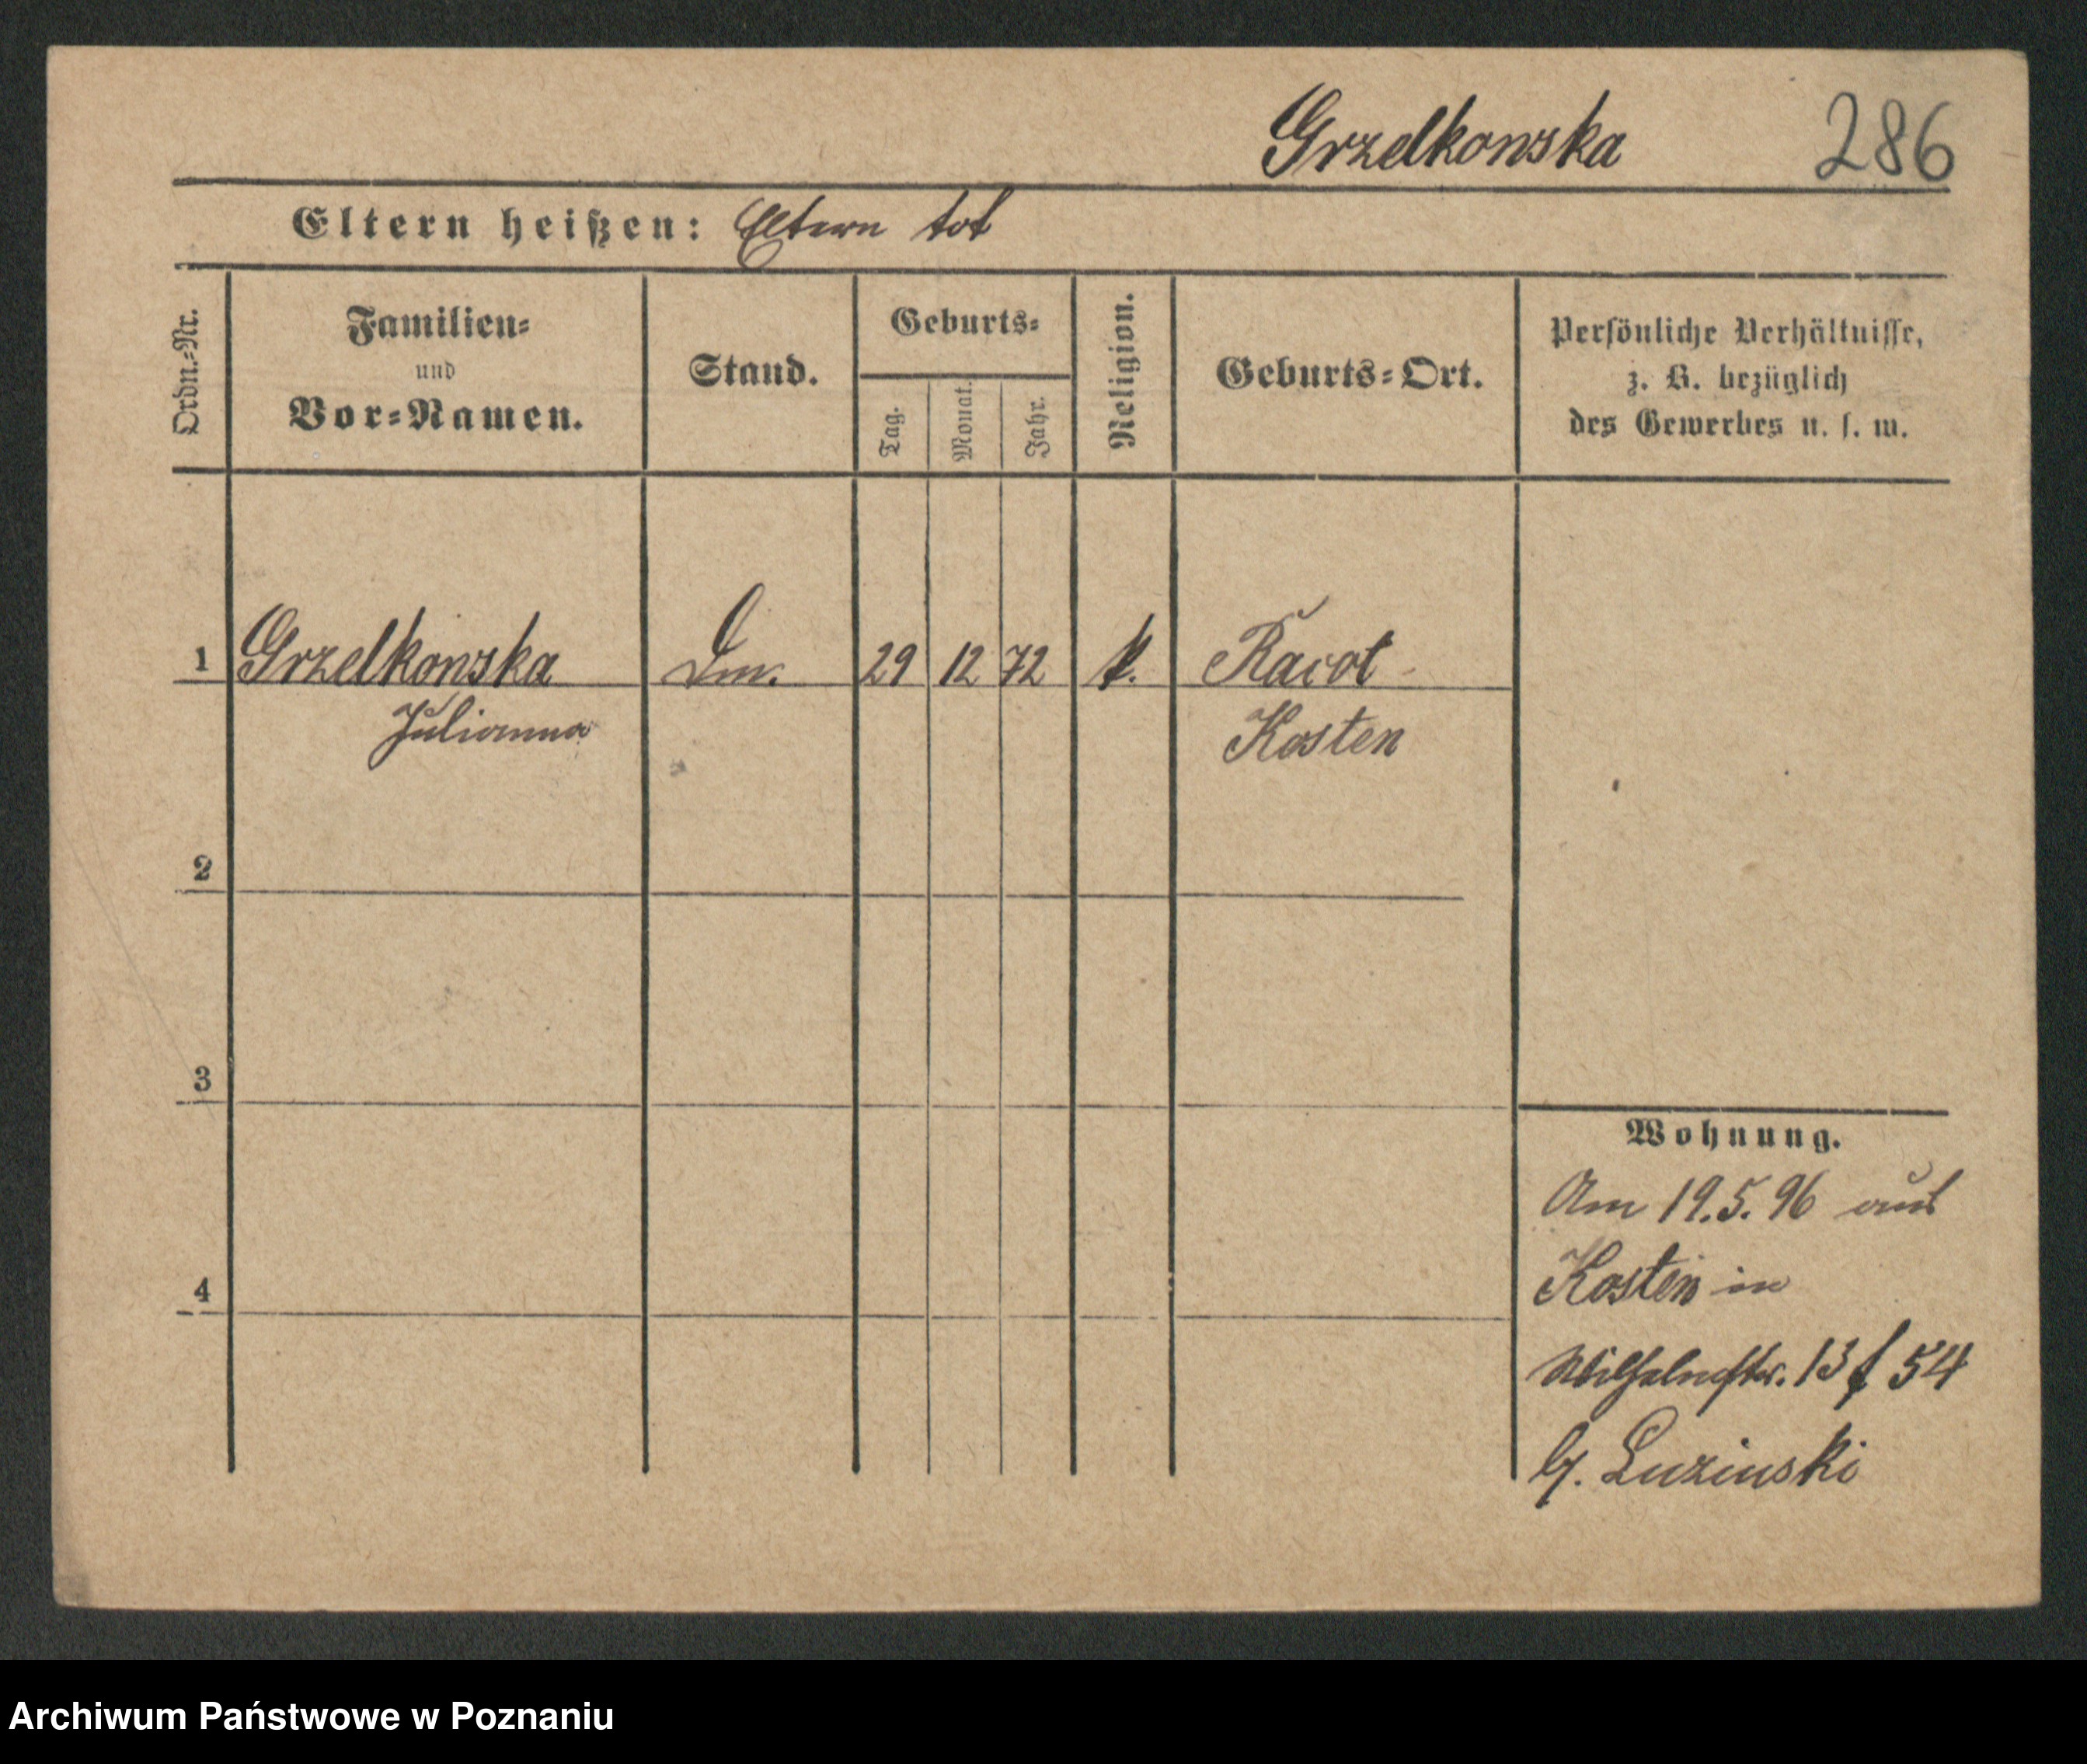 Grzelkowska 286
Eltern heißen: Eltern tot
Ordn.-Nr.
Familien-
und
Vor-Namen.
Stand.
Geburts-
Tag.
Monat.
Jahr.
Religion.
Geburts-Ort.
Persönliche Verhältnisse,
z. B. bezüglich
des Gewerbes u. s. w.
1 Grzelkowska 29 12 72 k. Racot
Julianna Kosten
2
3
4
Wohnung.
Am 19.5.96 aus
Kosten in
Wilhelmstr. 13 f 54
b/. Luzinski
Archiwum Państwowe w Poznaniu